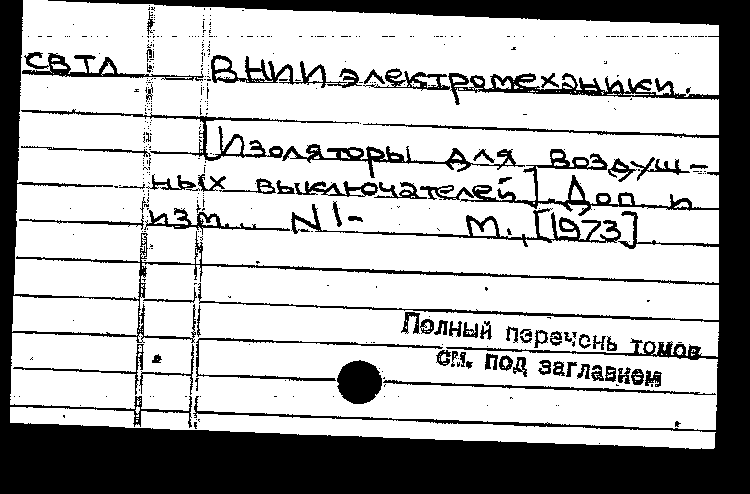 СВТЛ ВНИИэлектромеханики.
[Изоляторы для воздуш-
ных выключателей] Доп и
изм... N1- М., [1973].
Полный перечень томов
см. под заглавием